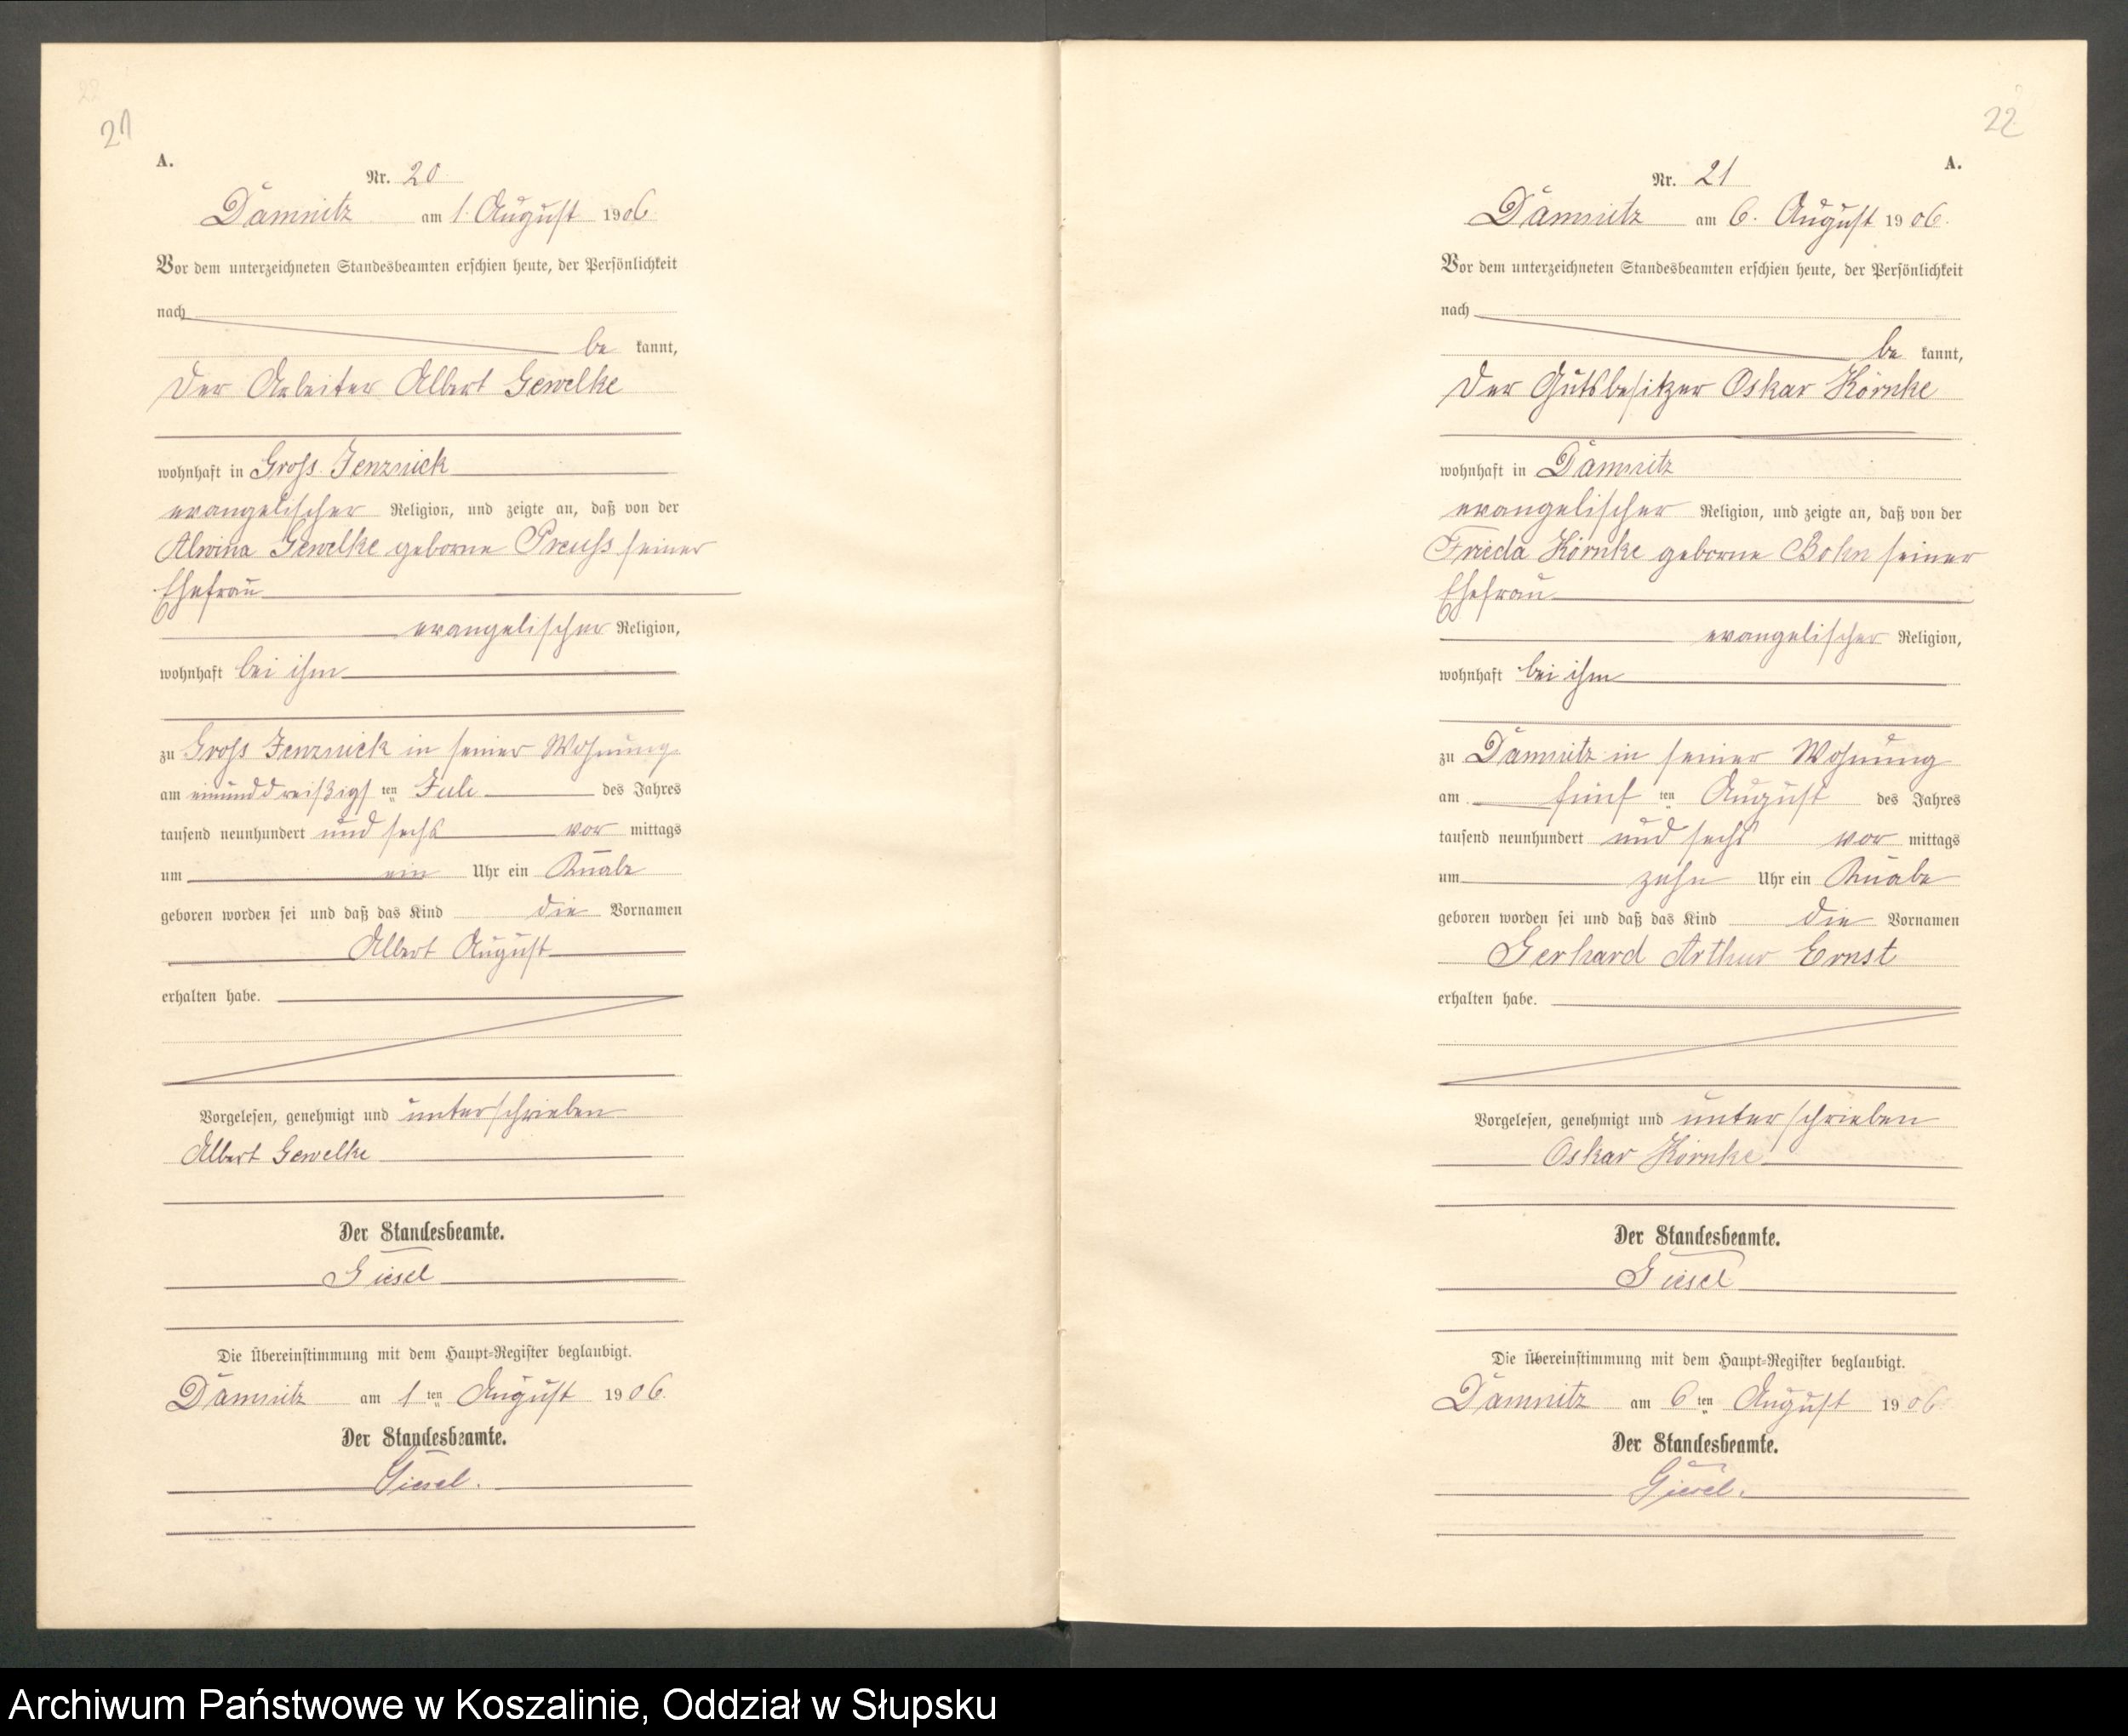 22
21
A.
Nr. 20
Damnitz am 1. August 1906
Vor dem unterzeichneten Standesbeamten erschien heute, der Persönlichkeit
nach
be kannt,
der Arbeiter Albert Gewelke
wohnhaft in Gross Jenznick
evangelischer Religion, und zeigte an, daß von der
Alwina Gewelke geborne Preuss seiner
Ehefrau
evangelischer Religion,
wohnhaft bei ihm
zu Gross Jenznick in seiner Wohnung
am einunddreißigs ten Juli des Jahres
tausend neunhundert und sechs vor mittags
um ein Uhr ein Knabe
geboren worden sei und daß das Kind die Vornamen
Albert August
erhalten habe.
Vorgelesen, genehmigt und unterschrieben
Albert Gewelke
Der Standesbeamte.
Giesel
Die Übereinstimmung mit dem Haupt-Register beglaubigt.
Damnitz am 1 ten August 1906.
Der Standesbeamte.
Giesel.
22
A.
Nr. 21
Damnitz am 6. August 1906.
Vor dem unterzeichneten Standesbeamten erschien heute, der Persönlichkeit
nach
be kannt,
der Gutsbesitzer Oskar Körnke
wohnhaft in Damnitz
evangelischer Religion, und zeigte an, daß von der
Frieda Körnke geborne Bohn seiner
Ehefrau
evangelischer Religion,
wohnhaft bei ihm
zu Damnitz in seiner Wohnung
am fünf ten August des Jahres
tausend neunhundert und sechs vor mittags
um zehn Uhr ein Knabe
geboren worden sei und daß das Kind die Vornamen
Gerhard Arthur Ernst
erhalten habe.
Vorgelesen, genehmigt und unterschrieben
Oskar Körnke
Der Standesbeamte.
Giesel
Die Übereinstimmung mit dem Haupt-Register beglaubigt.
Damnitz am 6 ten August 1906
Der Standesbeamte.
Giesel.
Archiwum Państwowe w Koszalinie, Oddział w Słupsku